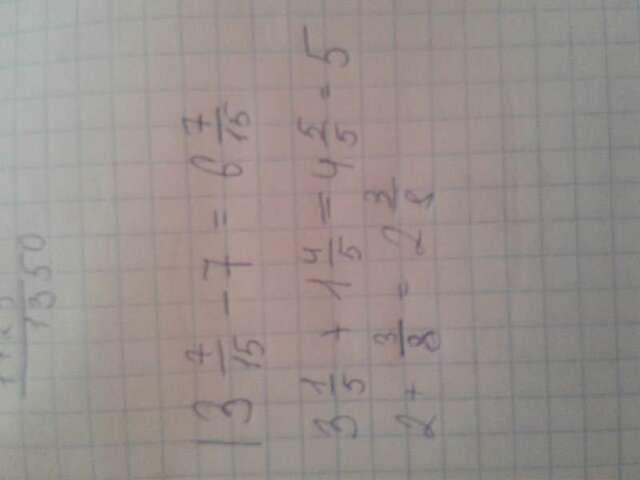 1350
13 7/15 - 7 = 6 7/15
3 1/5 + 1 4/5 = 4 5/5 = 5
2 + 3/8 = 2 3/8